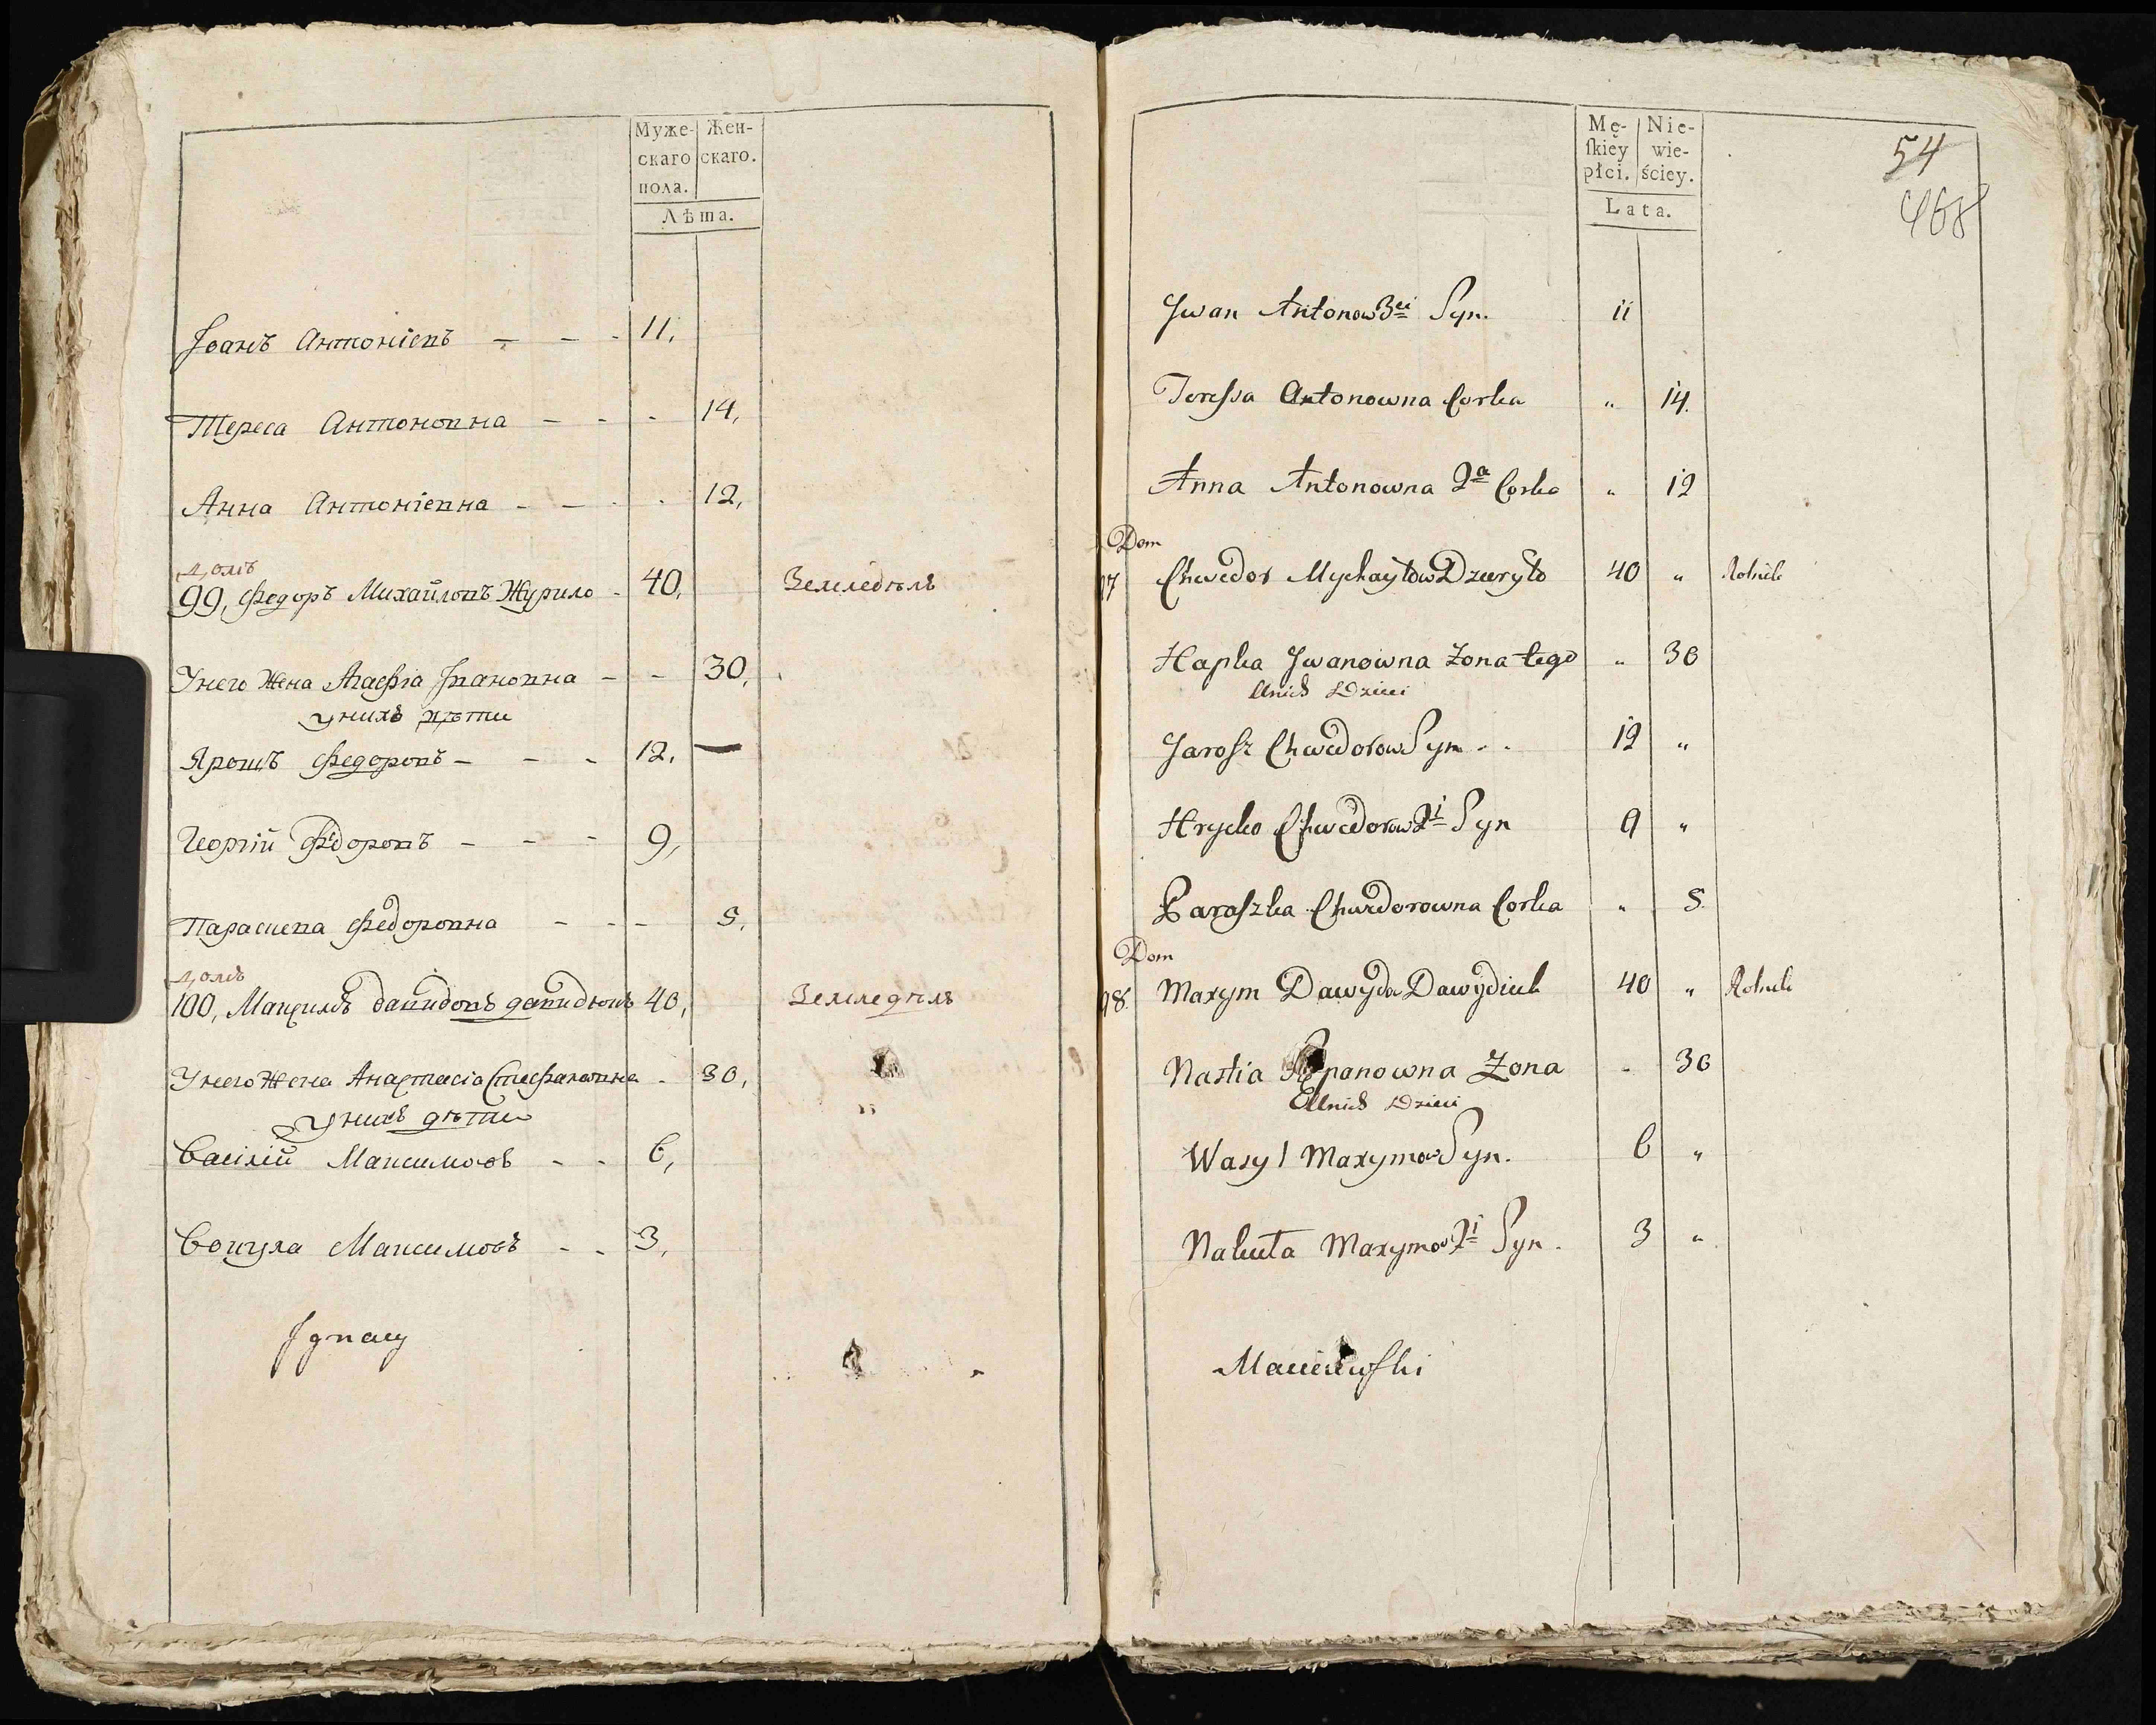 Муже- Жен-
скаго скаго.
пола.
Лѣта.
Іванъ Антоніевъ - - - 11,
Тереса Антоновна - - - 14,
Анна Антоніевна - - - 12,
домъ
99, Федоръ Михайловъ Журило - 40, Земледѣлъ
У него Жена Агафіа Івановна - - 30,
у нихъ дѣти
Ярошъ Федоровъ - - - 12, —
Георгій Федоровъ - - - 9,
Параскева Федоровна - - - 5,
домъ
100, Максимъ давидовъ давидюкъ 40, Земледѣлъ
У него Жена Анастасіа Стефановна - 30,
у нихъ дѣти
Василій Максимовъ - - 6,
Максимовъ - - 3,
Ignacy
Mę- Nie-
ſkiey wie-
płci. ściey.
Lata.
54
468
Jwan Antonow 3ci Syn. 11
Tereſsa Antonowna Corka " 14.
Anna Antonowna 2a Corka " 12
Dom
97 Chwedor Mychayłow Dzuryło 40 " Rolnik
Hapka Jwanowna Zona tego " 30
Unich Dzieci
Jaroſz Chwedorow Syn - - 12 "
Hrycko Chwedorow 2i Syn 9 "
Paraſzka Chwedorowna Corka " 5.
Dom
98. Maxym Dawyda Dawydiuk 40 " Rolnik
Nastia Zona - 30
Unich Dzieci
Wasyl Maxymow Syn. 6 "
Maxymow 2i Syn. 3 "